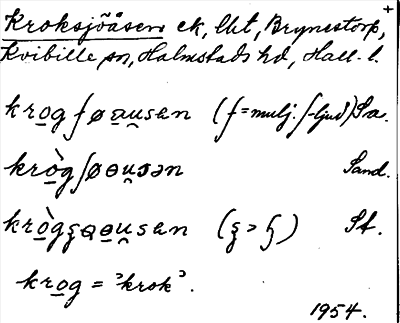 +
Kroksjöåsen ek, lht, Brynestorp,
Kvibille sn, Halmstads hd, Hall. l.
krog ʃøau̯sen (ʃ=mulj. ʃ-ljud) Sa.
kròg ʃøɵu̯sən Sand.
kròg ʂøɵu̯sen (ʂ > ɧ) St.
krog = 'krok'.
1954.